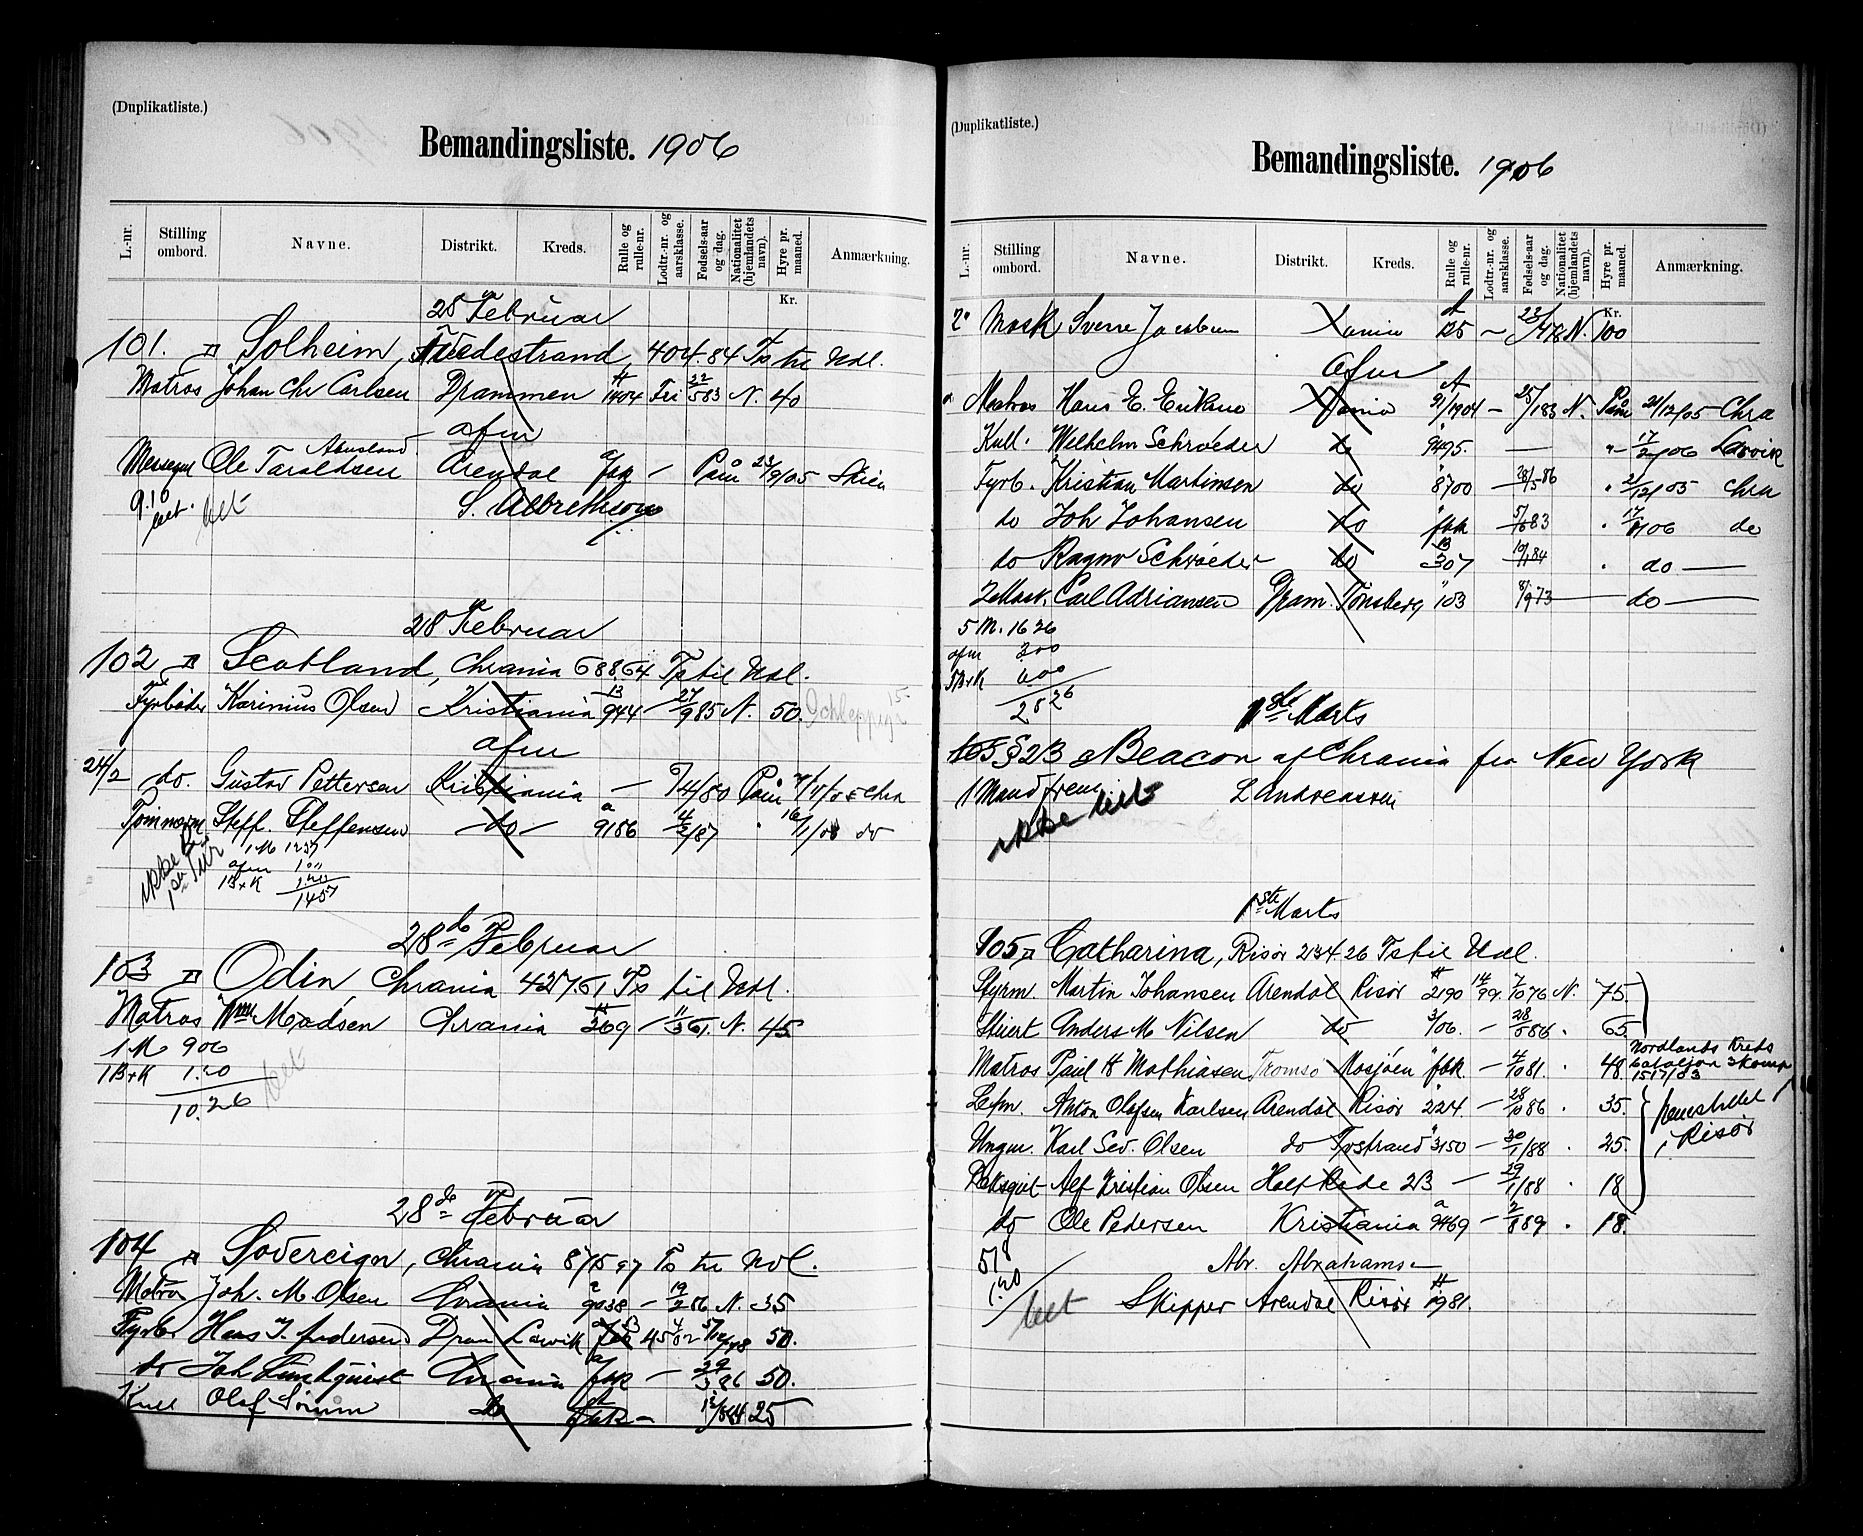 (Duplikatliste.)
Bemandingsliste. 1906
L.-nr. Stilling ombord. Navne. Distrikt. Kreds. Rulle og rulle-nr. Lodtr.-nr. og aarsklasse. Fødsels-aar og dag. Nationalitet (hjemlandets navn). Hyre pr. maaned. Anmærkning.
Kr.
28 Februar
101. Solheim, Tvedestrand 404.84 Ts til Udl.
Matros Johan Chr Carlsen Drammen 1404 Fri 22/5 83 N. 40
afm
Abusland
Ole Taraldsen Arendal fbk - Paam 23/9/05 Skien
9.10 S. Albrethson
bet. bet
28 Februar
102 Scotland, Chrania 688.64 Ts til Udl.
Fyrbøder Karinius Olsen Kristiania 13 944 - 27/9 85 N. 50.
afm
24/2 do. Gustav Pettersen Kristiania - 7/4/80 Paam chra
Tømmerm Steff. Steffensen do a 9186 4/2/87 " 16/1/06 do
ikke paa Tur
1 M 1237
afm 1 00
1 B+K
1457
28de Februar
103 Odin, Chrania 427.61 Ts til Udl.
Matros Wm Madsen Chrania 369 - 11/3 61. N. 45
1 M 906
1 B+K 1.20
10.26 bet
28de Februar
104 Sovereign, Chrania 875 97 Ts til Udl.
Matros Joh. M. Olsen Chrania a 9038 - 19/2 86 N. 35
Fyrb. Hans J. Andersen Dram Larvik 50.
do Joh Lundquist Chrania fbk - 29/3 86 50.
Kull Olaf do fbk - 25
(Duplikatliste.)
Bemandingsliste. 1906
L.-nr. Stilling ombord. Navne. Distrikt. Kreds. Rulle og rulle-nr. Lodtr.-nr. og aarsklasse. Fødsels-aar og dag. Nationalitet (hjemlandets navn). Hyre pr. maaned. Anmærkning.
Kr.
2den Mask Sverre Jacobsen Xania A 125 - 78 N. 100
afm
Matros Hans E. Eriksen Xania A 91/1904 - 25/1 83 N. Paam 21/12/05 Chra
Kull. Wilhelm Schrøeder do " 9495. - " 17/2/06 Larvik
Fyrb. Kristian Martinsen do " 8700 - 28/5 86 " 21/12/05 chra
do Joh Johansen do " fbk 83 " 17/1/06 do
do Ragnv Schrøeder do 13 307 84 " do
2 Mask. Carl Adriansen Dram. Tønsberg " 103 8/9 73 do
5 M. 16 26
afm 3 00
5 B+K 6 00
25 26
1ste Marts
105 § 23 Beacon af Chrania fra New York
1 Mand frem. L Andreassen
ikke bet
1ste Marts
105 Catharina, Risør 234.26 Ts til Udl.
Styrm. Martin Johansen Arendal Risør 2190 14/99. 7/10 76 N. 75.
Stuert Anders M Nilsen do 3/06. - 28/5 86 " 65
Nordlands Kreds
Matros Paul H Mathiasen Tromsø Mosjøen " fbk. - 4/10 81. " 48. bataljon 3 komp
1517/03
Letm. Anton Olafsen Karlsen Arendal Risør " 224. - 28/10 86 " 35. fremstillet
Ungm. Karl Sev. Olsen do Tvstrand " 3150 - 30/1/88 " 25. i Risør
Dæksgut Alf Kristian Olsen 213 - 29/1/88 " 18
do Ole Pedersen Kristiania a 9469 - 2/8 89 " 18.
518 Abr. Abrahamsen
1.20
bet Skipper Arendal Risør 1981.